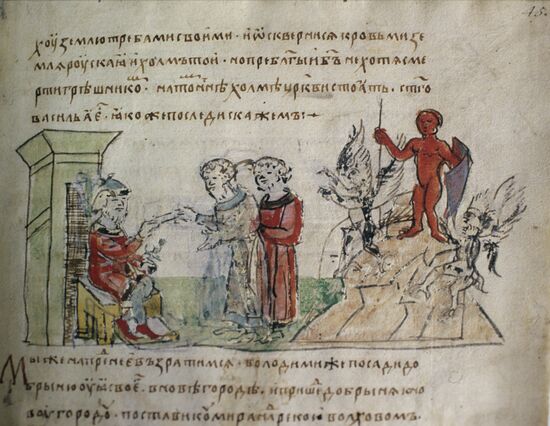 15.
хоу землю требами своими · и ѡсквернисѧ кровьми зе
млѧ роускаꙗ и холмъ той · но пребл҃гыи б҃ъ не хотѧ сме
рти грѣшникоⷨ · на тоⷨ же холмѣ цр҃кви стоꙗть · ст҃го
васильꙗ еⷭ · ꙗкоже последи скажемъ :·
Мы же на преⷣнее възратимсѧ · володимиⷬ же посади до
брыню оуꙗ своеⷢ · в новѣгородѣ · и пришеⷣ добрынꙗ к но
воу городоу · постави коумира наⷣ рекою волховомъ ·